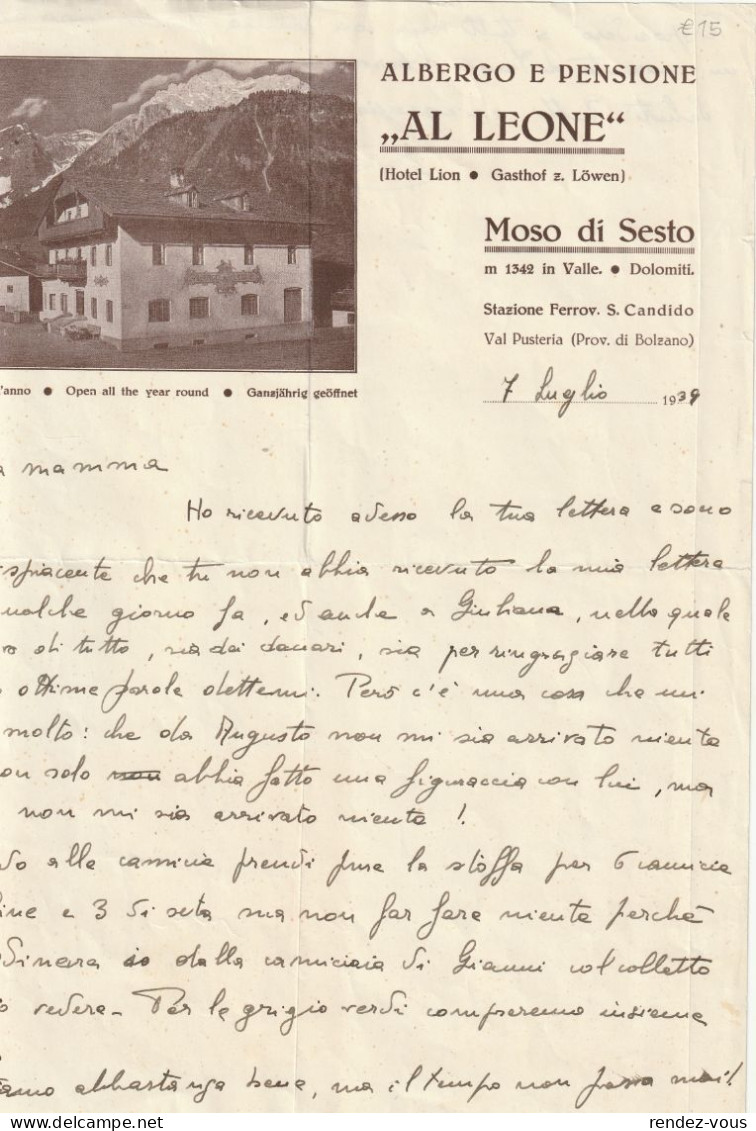 €15
ALBERGO E PENSIONE
„AL LEONE“
(Hotel Lion ● Gasthof z. Löwen)
Moso di Sesto
m 1342 in Valle. ● Dolomiti.
Stazione Ferrov. S. Candido
Val Pusteria (Prov. di Bolzano)
'anno ● Open all the year round ● Ganzjährig geöffnet
7 Luglio 1939
a mamma
Ho ricevuto adesso la tua lettera e sono
spiacente che tu non abbia ricevuto la mia lettera
ualche giorno fa, ed anche a Giuliana, nella quale
vo di tutto, sia dei danari, sia per ringraziare tutti
ottime parole dettemi. Però c'è una cosa che mi
molto: che da Augusto non mi sia arrivato niente
on solo non abbia fatto una figuraccia con lui, ma
non mi sia arrivato niente!
do alle camicie prendi pure la stoffa per 6 camicie
ine e 3 di seta ma non far fare niente perchè
dinerei io dalla camiciaia di Gianni col colletto
vedere. Per le grigio verdi compreremo insieme
iamo abbastanza bene, ma il tempo non passa mai!
rendez-vous